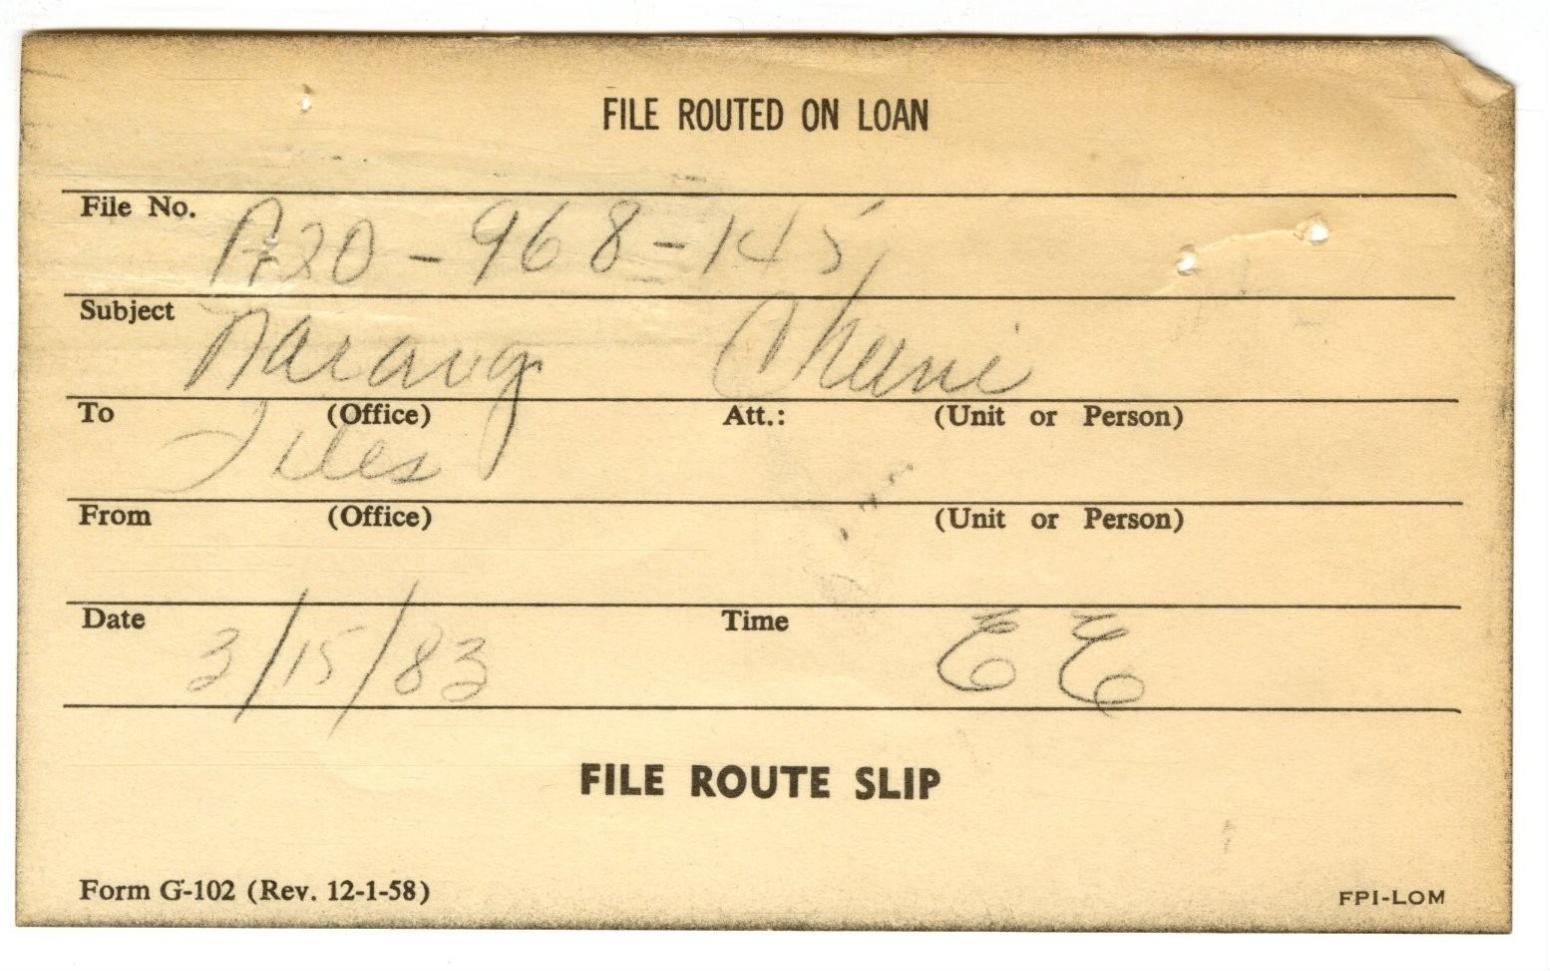 FILE ROUTED ON LOAN
File No. A20-968-145
Subject Narang
To (Office) Att.: (Unit or Person)
Files
From (Office) (Unit or Person)
Date 3/15/83 Time EE
FILE ROUTE SLIP
Form G-102 (Rev. 12-1-58) FPI-LOM